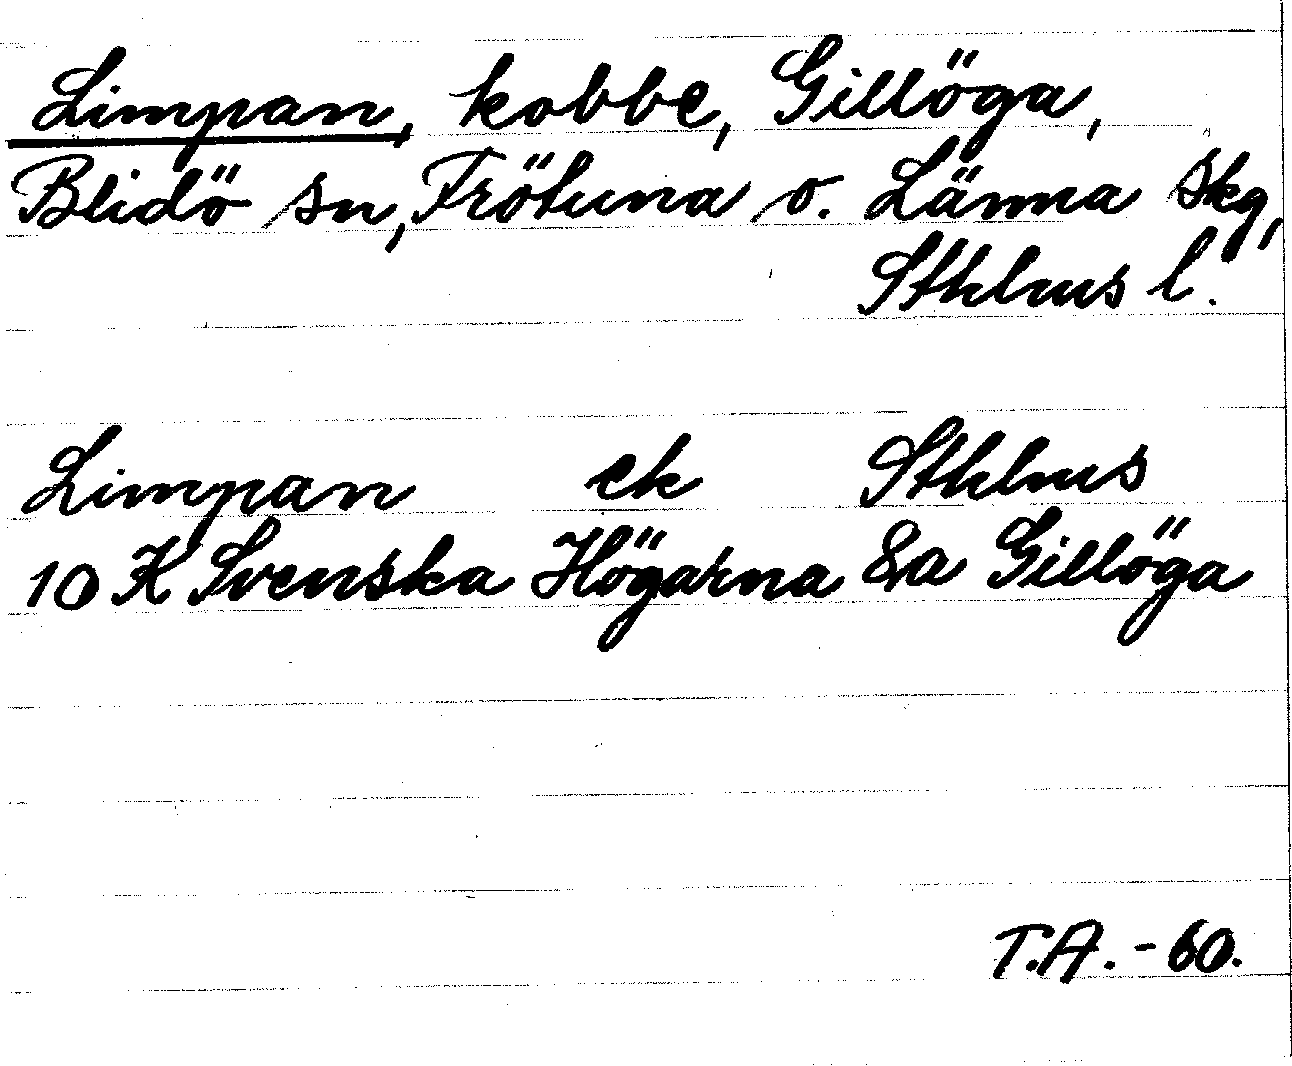 Limpan, kobbe, Gillöga,
Blidö sn, Frötuna o. Länna skg,
Sthlms l.
Limpan ek Sthlms
10 K Svenska Högarna &a Gillöga
T.A. - 60.